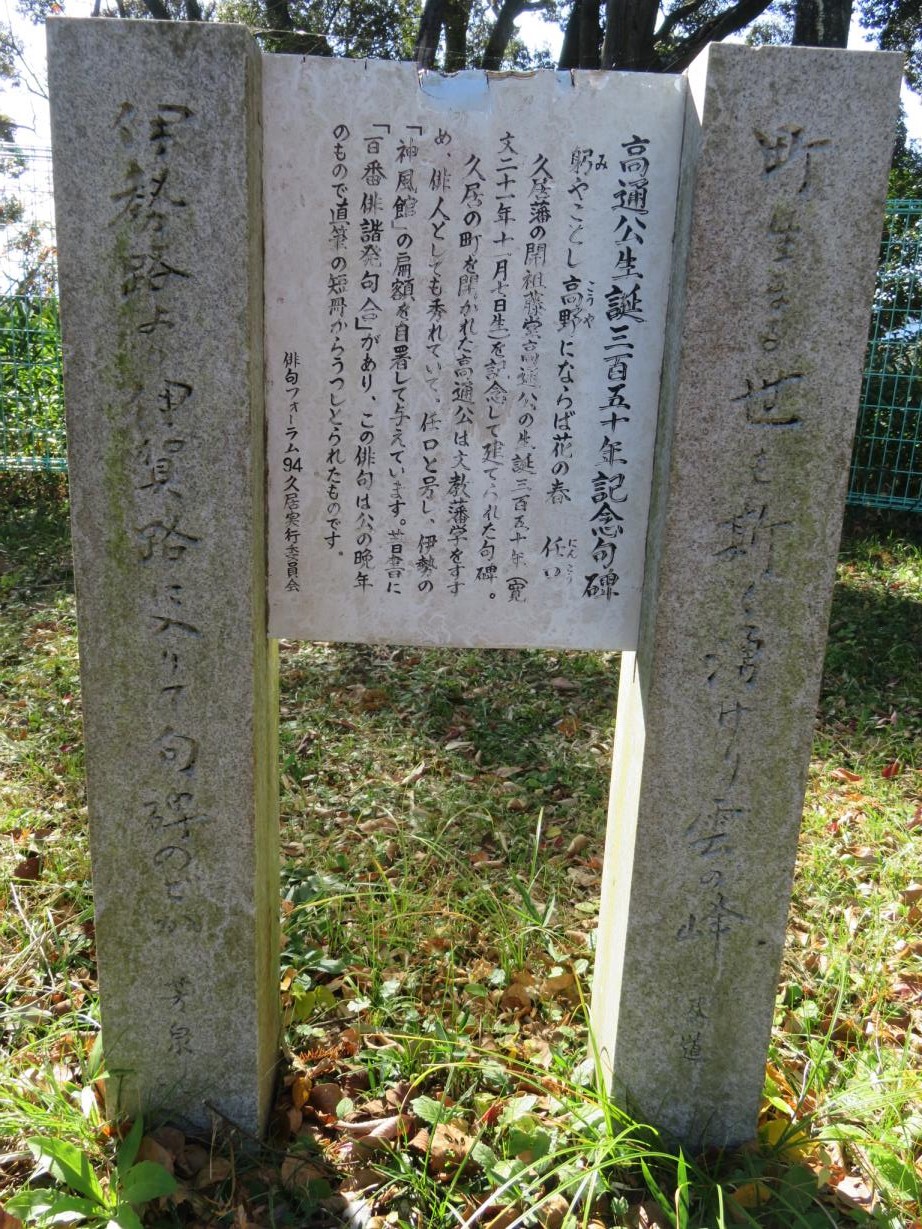 町生る世も斯く湧けり雲の峰
高通公生誕三百五十年記念句碑
躬やことし高野にならば花の春　任口
久居藩の開祖藤堂高通公の生誕三百五十年（寛
文二十一年十一月七日生）を記念して建てられた句碑。
久居の町を開かれた高通公は文教藩学をすす
め、俳人としても秀れていて、任口と号し、伊勢の
「神風館」の扁額を自署して与えています。著書に
「百番俳諧発句合」があり、この俳句は公の晩年
のもので直筆の短冊からうつしとられたものです。
俳句フォーラム94久居実行委員会
伊勢路より伊賀路に入りて句碑のどか
芳泉